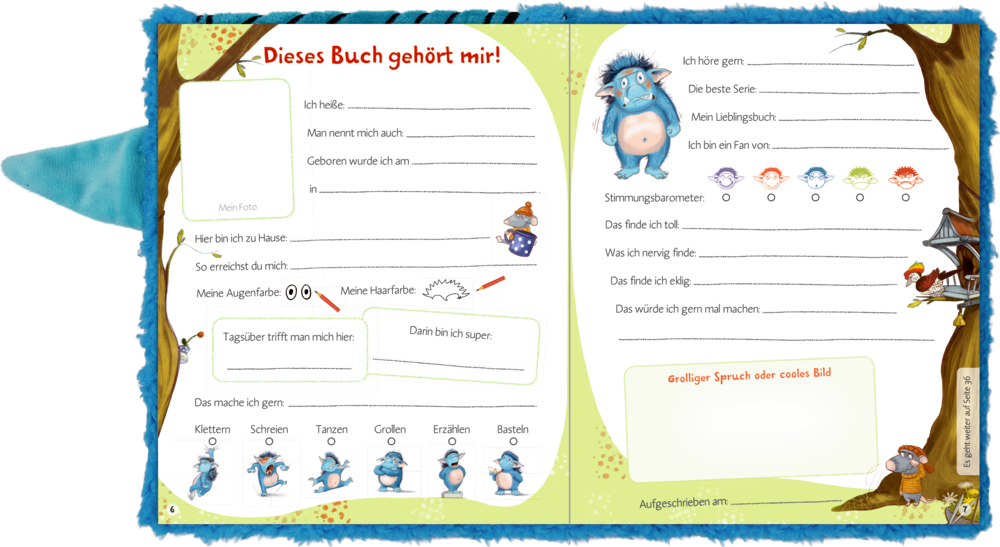 Dieses Buch gehört mir!
Mein Foto
Ich heiße:
Man nennt mich auch:
Geboren wurde ich am
in
Hier bin ich zu Hause:
So erreichst du mich:
Meine Augenfarbe:
Meine Haarfarbe:
Tagsüber trifft man mich hier:
Darin bin ich super:
Das mache ich gern:
Klettern
Schreien
Tanzen
Grollen
Erzählen
Basteln
6
Ich höre gern:
Die beste Serie:
Mein Lieblingsbuch:
Ich bin ein Fan von:
Stimmungsbarometer:
Das finde ich toll:
Was ich nervig finde:
Das finde ich eklig:
Das würde ich gern mal machen:
Grolliger Spruch oder cooles Bild
Es geht weiter auf Seite 36
Aufgeschrieben am:
7